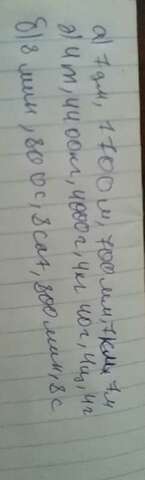 а) 7 дм, 1700 м, 700 мм, 7 км 7 м
д) 4 т, 4400 кг, 4000 г, 4 кг 40 г, 4 ц, 4 г
б) 8 мин, 80 с, 8 сат, 800 мин, 8 с